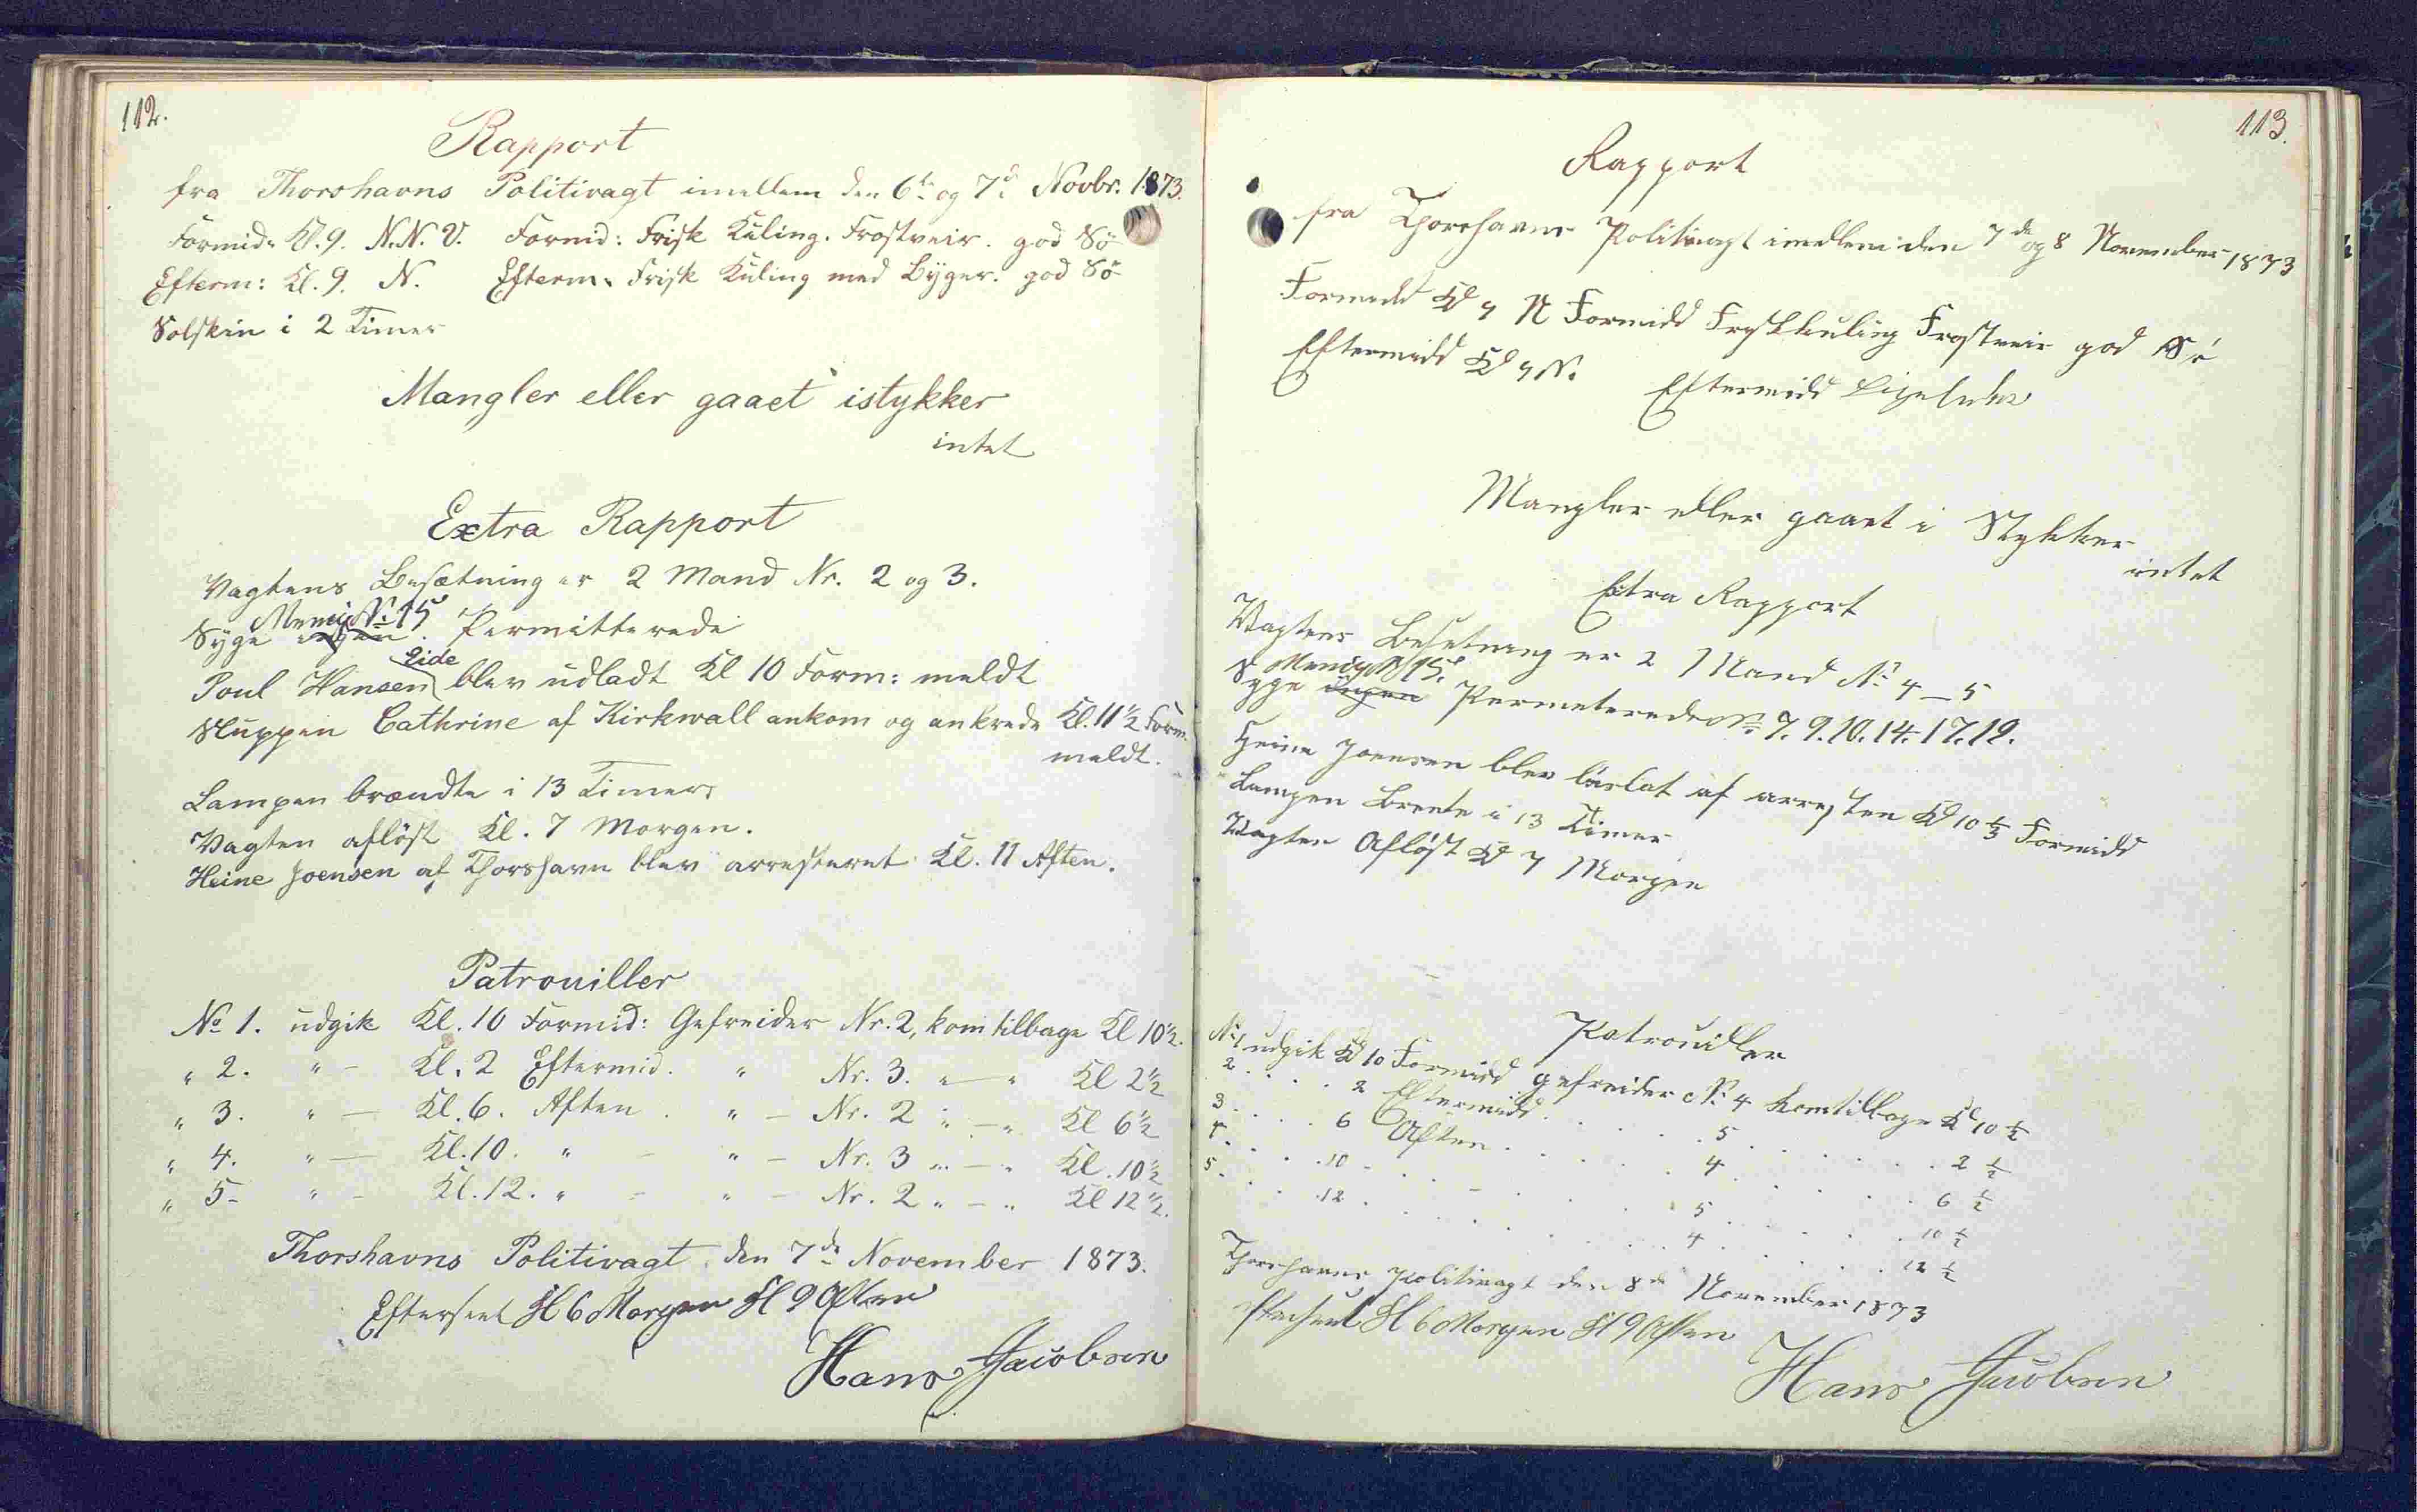 112.
Rapport
fra Thorshavns Politivagt imellem den 6te og 7de Novbr. 1873.
Formid: Kl. 9. N.N.V. Formid: Frisk Kuling. Frostveir. god Sö
Efterm: Kl. 9. N. Efterm. Frisk Kuling med Byger. god Sö
Solskin i 2 Timer
Mangler eller gaaet istykker
intet
Extra Rapport
Vagtens Besætning er 2 Mand Nr. 2 og 3.
Menig № 15
Syge ingen. Permitterede
Eide
Poul Hansen blev udladt Kl 10 Form: meldt
Sluppen Cathrine af Kirkwall ankom og ankrede Kl. 11½ Form.
meldt.
Lampen brændte i 13 Timer
Vagten aflöst Kl. 7 Morgen.
Heine Joensen af Thorshavn blev arresteret Kl. 11 Aften.
Patrouiller
№ 1. udgik Kl. 10 Formid: Gefreider Nr. 2, kom tilbage Kl 10½.
" 2. " - Kl. 2 Eftermid. " Nr. 3. " — " Kl 2½
" 3. " — Kl. 6. Aften. " — Nr. 2 " — " Kl 6½
" 4. " — Kl. 10. " - " — Nr. 3 " — " Kl. 10½
" 5- " - Kl. 12. " - " — Nr. 2 " — " Kl 12½.
Thorshavns Politivagt den 7de November 1873.
Efterseet Kl 6 Morgen Kl 9 Aften
Hans Jacobsen
113.
Rapport
fra Thorshavns Politivagt imellem den 7de og 8 November 1873
Formidd Kl 9 N Formidd Frysk kuling Frostveir god Sö
Eftermidd Kl 9 N. Eftermidd Ligeledes
Mangler eller gaaet i Stykker
intet
Extra Rapport
Vagtens Besetning er 2 Mand № 4 — 5
Menig № 15.
Syge ingen Permeterede № 7. 9. 10. 14. 17. 19.
Heine Joensen blev löslat af arresten Kl 10 ½ Formidd
Lampen Brente i 13 Timer
Vagten Aflöst Kl 7 Morgen
Patrouiller
№ 1 udgik Kl 10 Formidd gefreider № 4 kom tilbage Kl 10 ½
2 . . . . 2 Eftermidd . . . . 5 . . . . . 2 ½
3 . . . . 6 Aften . . . . . 4 . . . . . 6 ½
4 . . . . 10 . . - . . . . 5 . . . . . 10 ½
5 . . . . 12 . . . . . . . 4 . . . . . 12 ½
Thorshavns Politivagt den 8de November 1873
Efterseet Kl 6 Morgen Kl 9 Aften
Hans Jacobsen